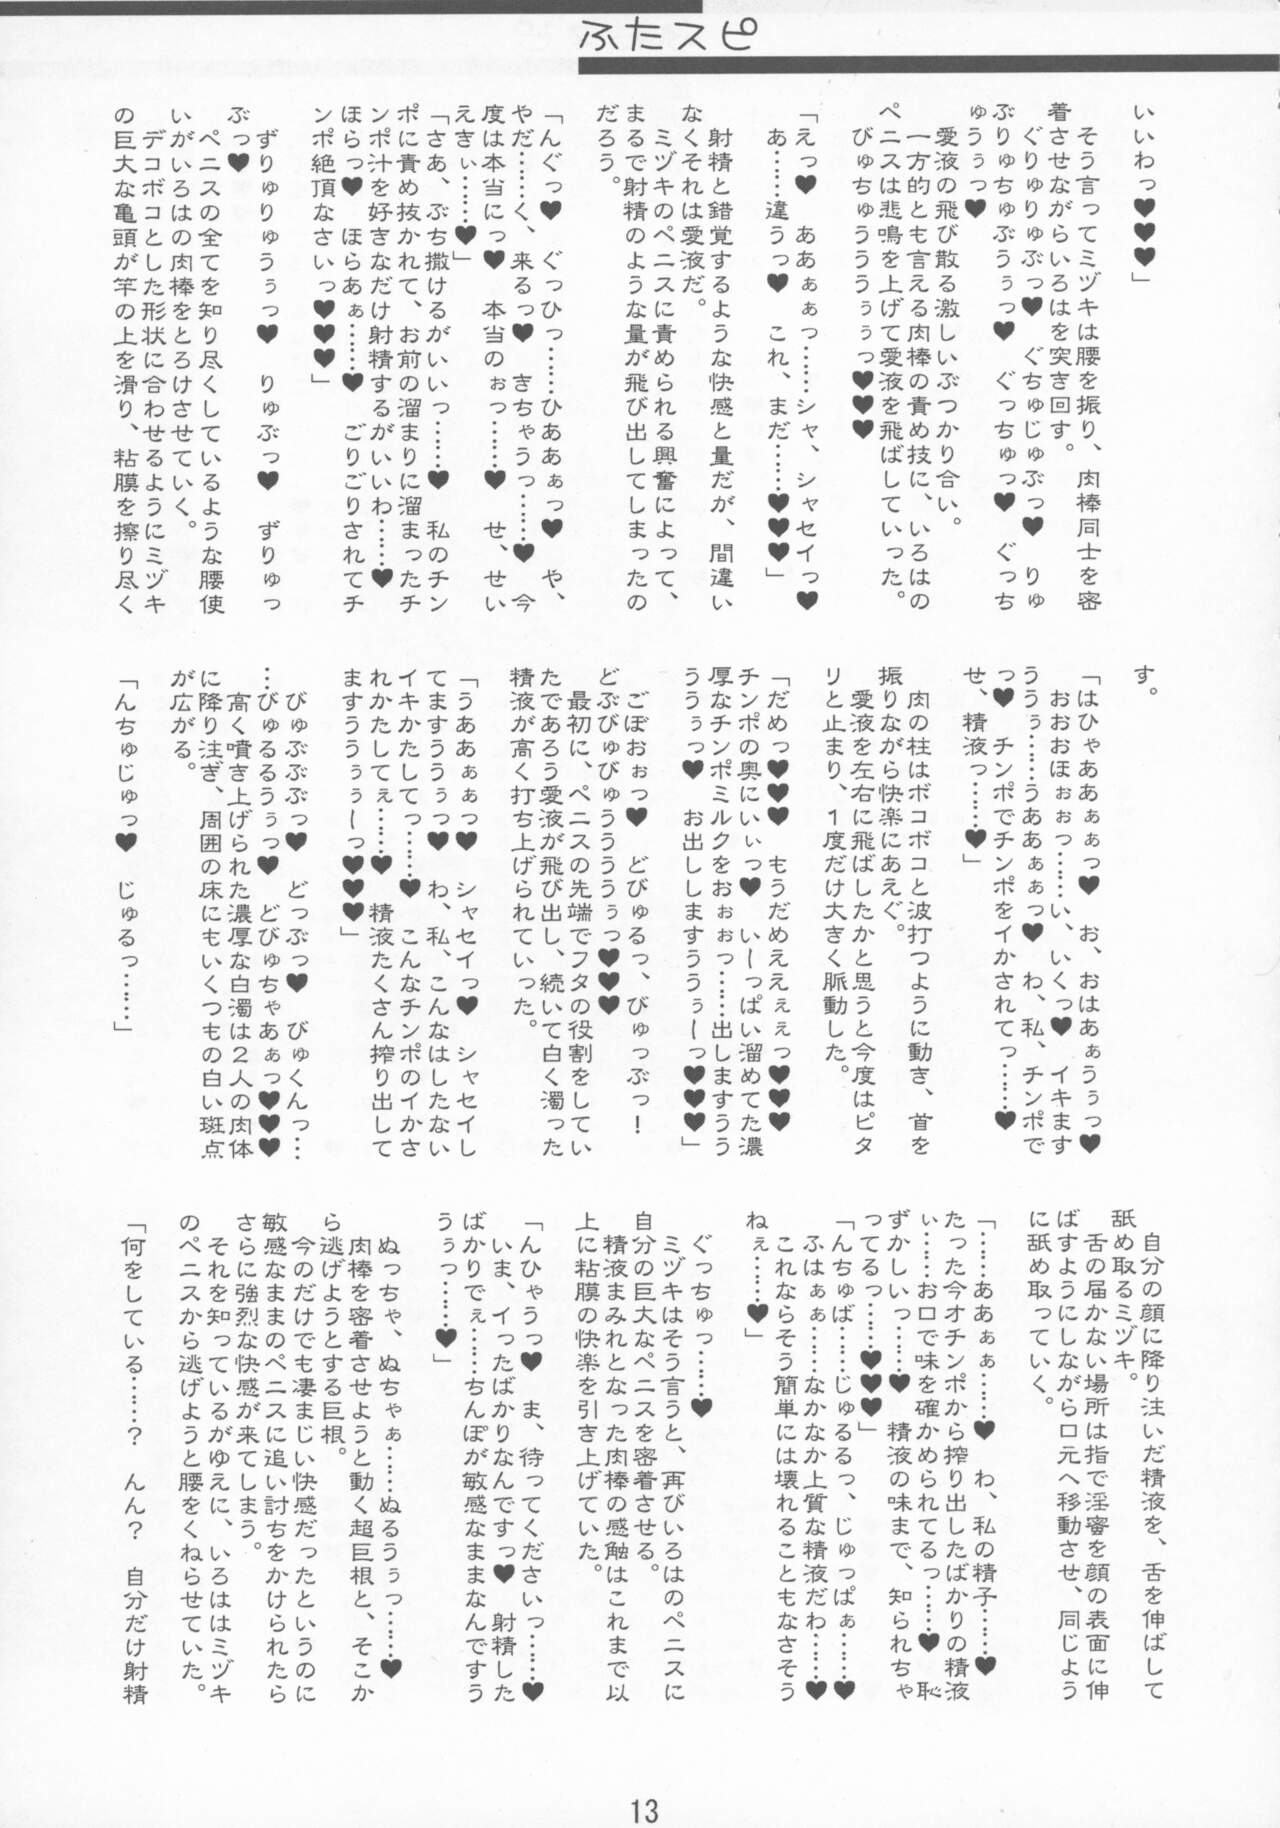 ふたスピ
いいわっ♥♥♥」
　そう言ってミヅキは腰を振り、肉棒同士を密
着させながらいろはを突き回す。
　ぐりゅりゅぶっ♥　ぐちゅじゅぶっ♥　りゅ
ぶりゅちゅぶうぅっ♥　ぐっちゅっ♥　ぐっち
ゅうぅっ♥
　愛液の飛び散る激しいぶつかり合い。
　一方的とも言える肉棒の責め技に、いろはの
ペニスは悲鳴を上げて愛液を飛ばしていった。
　びゅちゅうううぅぅっ♥♥♥
「えっ♥　ああぁぁっ……シャ、シャセイっ♥
　あ……違うっ♥　これ、まだ……♥♥♥」
　射精と錯覚するような快感と量だが、間違い
なくそれは愛液だ。
　ミヅキのペニスに責められる興奮によって、
まるで射精のような量が飛び出してしまったの
だろう。
「んぐっ♥　ぐっひっ……ひああぁっ♥　や、
やだ……く、来るっ♥　きちゃうっ……♥　今
度は本当にっ♥　本当のぉっ……♥　せ、せい
えきぃ……♥」
「さあ、ぶち撒けるがいいっ……♥　私のチン
ポに責め抜かれて、お前の溜まりに溜まったチ
ンポ汁を好きなだけ射精するがいいわ……♥
ほらっ♥　ほらあぁ……♥　ごりごりされてチ
ンポ絶頂なさいっ♥♥♥」
　ずりゅりゅうぅっ♥　りゅぶっ♥　ずりゅっ
ぶっ♥
　ペニスの全てを知り尽くしているような腰使
いがいろはの肉棒をとろけさせていく。
　デコボコとした形状に合わせるようにミヅキ
の巨大な亀頭が竿の上を滑り、粘膜を擦り尽く
す。
「はひゃああぁぁっ♥　お、おはあぁうぅっ♥
　おおおほぉぉっ……い、いくっ♥　イキます
ううぅ……うああぁぁっ♥　わ、私、チンポで
っ♥　チンポでチンポをイかされてっ……♥
せ、精液っ……♥」
　肉の柱はボコボコと波打つように動き、首を
振りながら快楽にあえぐ。
　愛液を左右に飛ばしたかと思うと今度はピタ
リと止まり、１度だけ大きく脈動した。
「だめっ♥♥♥　もうだめえぇぇぇっ♥♥♥
チンポの奥にいぃっ♥　い～っぱい溜めてた濃
厚なチンポミルクをおぉぉっ……出しますうう
ううぅっ♥　お出ししますううぅ～っ♥♥♥」
　ごぼおぉっ♥　どびゅるっ、びゅっぶっ！
どぶびゅびゅうううぅっ♥♥♥
　最初に、ペニスの先端でフタの役割をしてい
たであろう愛液が飛び出し、続いて白く濁った
精液が高く打ち上げられていった。
「うああぁぁっ♥　シャセイっ♥　シャセイし
てますううぅっ♥　わ、私、こんなはしたない
イキかたしてっ……♥　こんなチンポのイかさ
れかたしてぇ……♥　精液たくさん搾り出して
ますううぅぅ～っ♥♥♥」
　びゅぶぶぶっ♥　どっぶっ♥　びゅくんっ…
…びゅるるうぅっ♥　どびゅちゃあぁっ♥♥♥
　高く噴き上げられた濃厚な白濁は２人の肉体
に降り注ぎ、周囲の床にもいくつもの白い斑点
が広がる。
「んちゅじゅっ♥　じゅるっ……」
　自分の顔に降り注いだ精液を、舌を伸ばして
舐め取るミヅキ。
　舌の届かない場所は指で淫審を顔の表面に伸
ばすようにしながら口元へ移動させ、同じよう
に舐め取っていく。
「……ああぁぁ……♥　わ、私の精子……♥
たった今オチンポから搾り出したばかりの精液
ぃ……お口で味を確かめられてるっ……♥　恥
ずかしいっ……♥　精液の味まで、知られちゃ
ってるっ……♥♥♥」
「んちゅば……じゅるるっ、じゅっぱぁ……♥
　ふはぁぁ……なかなか上質な精液だわ……♥
　これならそう簡単には壊れることもなさそう
ねぇ……♥」
　ぐっちゅっ……♥
　ミヅキはそう言うと、再びいろはのペニスに
自分の巨大なペニスを密着させる。
　精液まみれとなった肉棒の感触はこれまで以
上に粘膜の快楽を引き上げていた。
「んひゃうっ♥　ま、待ってくださいっ……♥
　いま、イったばかりなんですっ♥　射精した
ばかりでぇ……ちんぽが敏感なままなんですう
うぅっ……♥」
　ぬっちゃ、ぬちゃぁ……ぬるうぅっ……♥
　肉棒を密着させようと動く超巨根と、そこか
ら逃げようとする巨根。
　今のだけでも凄まじい快感だったというのに
敏感なままのペニスに追い討ちをかけられたら
さらに強烈な快感が来てしまう。
　それを知っているがゆえに、いろははミヅキ
のペニスから逃げようと腰をくねらせていた。
「何をしている……？　んん？　自分だけ射精
13